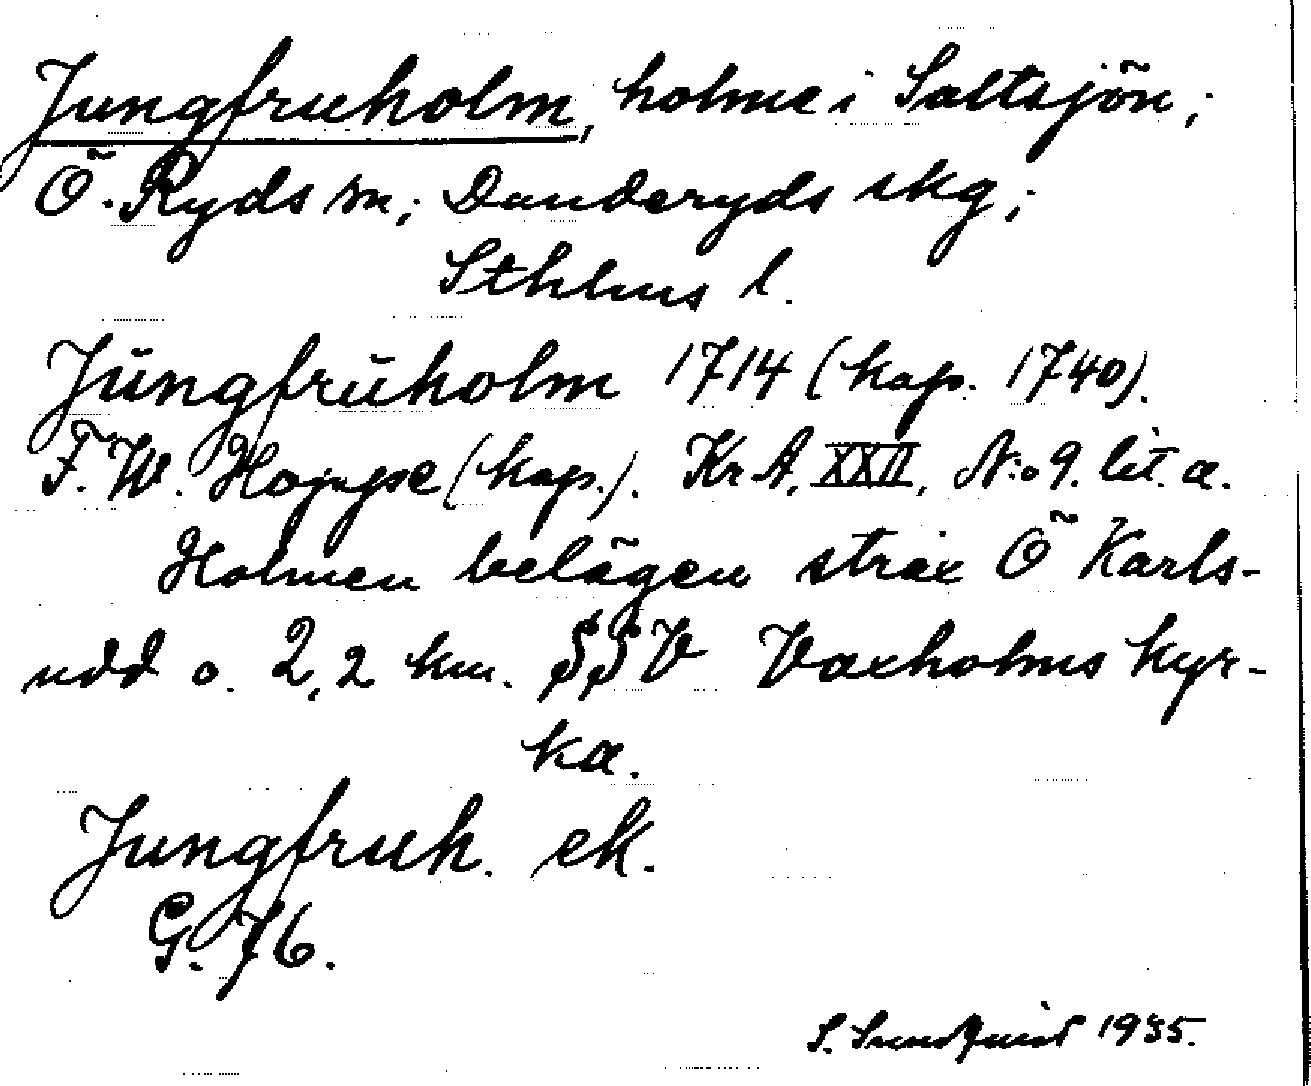 Jungfruholm, holme i Saltsjön;
Ö. Ryds sn; Danderyds skg;
Sthlms l.
Jŭngfrŭholm 1714 (kop. 1740).
F. W. Hoppe (kop.). Kr A. XXII, N:o 9. lit. a.
Holmen belägen strax Ö Karls-
udd o. 2,2 km. SSV Vaxholms kyr-
ka.
Jungfruh. ek.
G. 76.
S. Sundquist 1935.